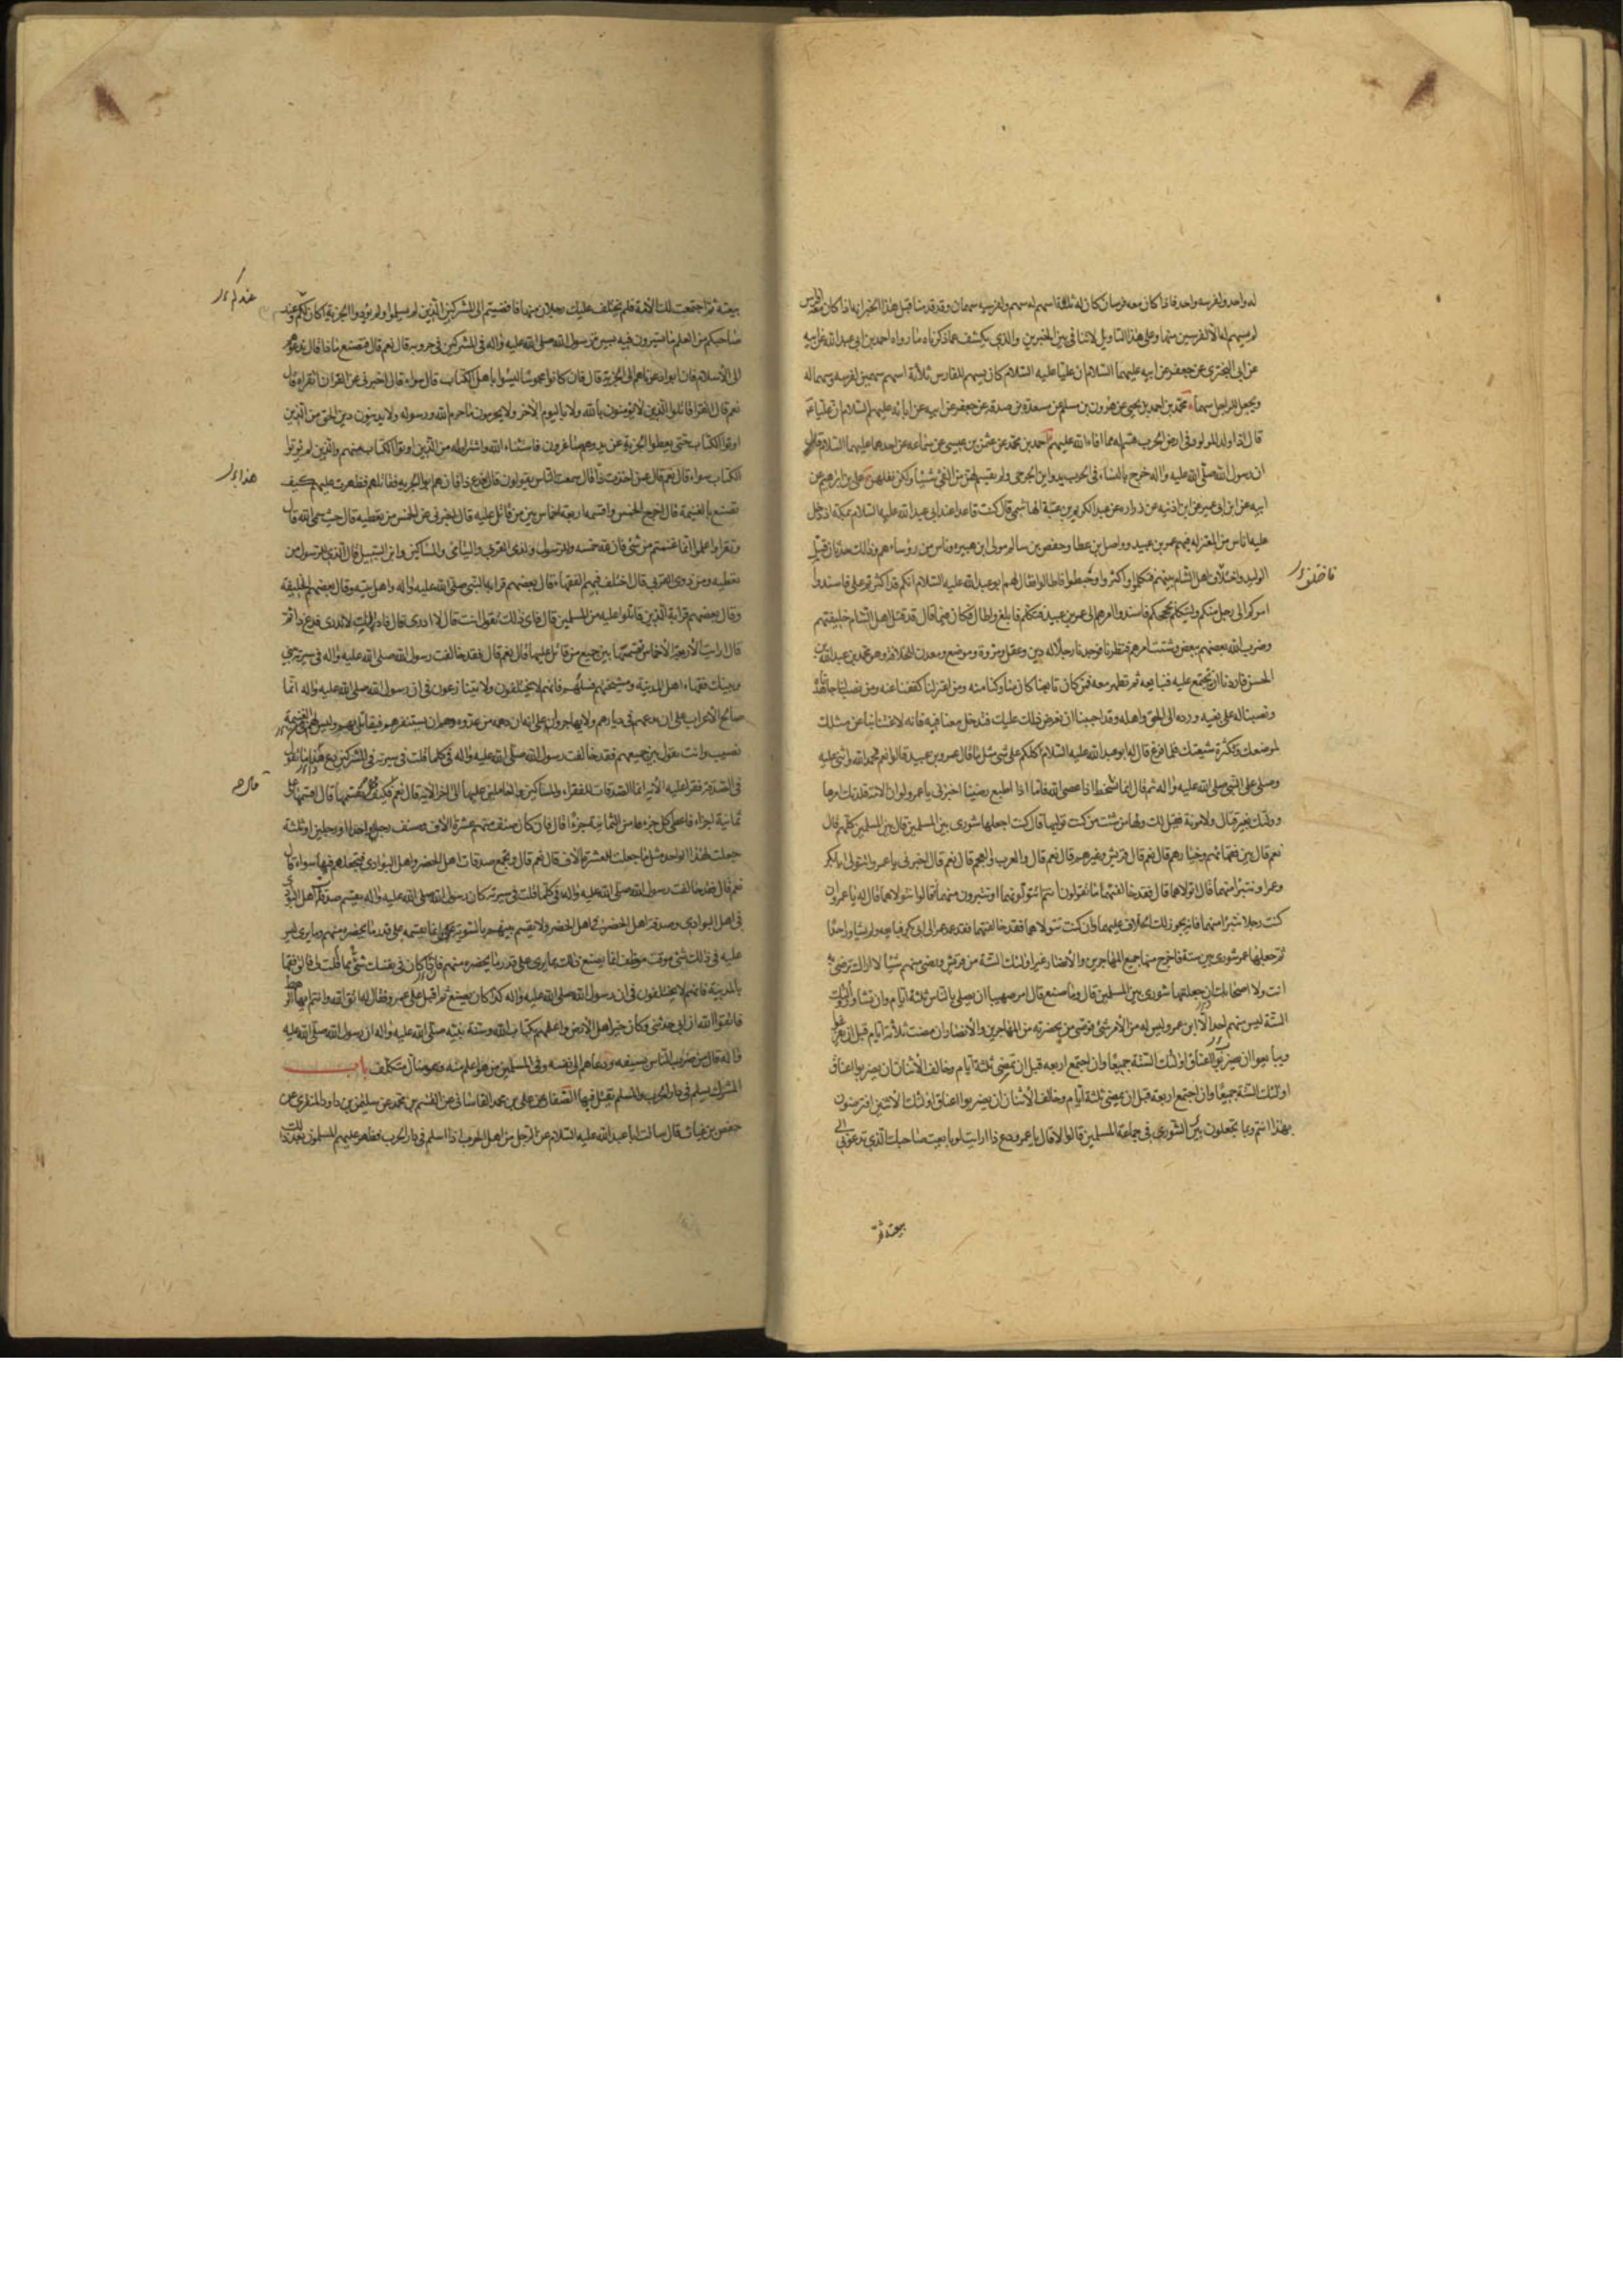 له واحد ولفرسه واحد فاذا كان معه فرسان كان له ثلثة اسهم له سهم ولفرسيه سهمان وقد قدمنا قبل هذا الخبر انه اذا كان معه افراس
لم يسهم له الا لفرسين منها وعلى هذا التاويل لا تنافى بين الخبرين والذي يكشف عما ذكرناه ما رواه احمد بن ابى عبد الله عن ابيه
عن ابى البخترى عن جعفر عن ابيه عليهما السلام ان عليا عليه السلام كان يسهم للفارس ثلاثة اسهم سهمين لفرسه وسهما له
ويجعل للراجل سهما محمد بن احمد بن يحيى عن هرون بن مسلم عن مسعدة بن صدقة عن جعفر عن ابيه عن ابائه عليهم السلام ان عليا ع
قال اذا ولد المولود فى ارض الحرب قسم له مما افاء الله عليهم احمد بن محمد عن عثمن بن عيسى عن سماعه عن احدهما عليهما السلام قال
ان رسول الله صلى الله عليه واله خرج بالنساء فى الحرب يداوين الجرحى ولم يقسم لهن من الفئ شيئا ولكن نفلهن على بن ابرهيم عن
ابيه عن ابن ابى عمير عن ابن اذنيه عن زراره عن عبد الكريم بن عتبة الهاشمى قال كنت قاعدا عند ابى عبد الله عليه السلام بمكة اذ دخل
عليه اناس من المعتزله فيهم عمرو بن عبيد وواصل بن عطا وحفص بن سالم مولى ابن هبيره وناس من رؤساءهم وذلك حدثان قتل
الوليد واختلاف اهل الشام بينهم فتكلموا واكثروا وخبطوا فاطالوا فقال لهم ابو عبد الله عليه السلام انكم قد اكثرتم على فاسندوا
فاختلفوا
امركم الى رجل منكم وليتكلم بحججكم فاسندوا امرهم الى عمرو بن عبيد فتكلم فابلغ واطال فكان فيما قال قد قتل اهل الشام خليفتهم
وضرب الله بعضهم ببعض وشتت امرهم فنظرنا فوجدنا رجلا له دين وعقل ومروة وموضع ومعدن للخلافة وهو محمد بن عبد الله بن
الحسن فاردنا ان نجتمع عليه فنبايعه ثم نظهر معه فمن كان تابعنا كان منا وكنا منه ومن اعتزلنا كففنا عنه ومن نصب لنا جاهدناه
ونصبنا له على بغيه ورده الى الحق واهله وقد احببنا ان نعرض ذلك عليك فتدخل معنا فيه فانه لا غنا بنا عن مثلك
لموضعك وكثرة شيعتك فلما فرغ قال له ابو عبد الله عليه السلام اكلكم على مثل ما قال عمرو بن عبيد قالوا نعم فحمد الله واثنى عليه
وصلى على النبى صلى الله عليه واله ثم قال انما نسخط اذا عصى الله فاما اذا اطيع رضينا اخبرنى يا عمرو لو ان الامة قلدتك امرها
وولتك بغير قتال ولا مونة فقيل لك ولها من شئت من كنت توليها قال كنت اجعلها شورى بين المسلمين قال بين المسلمين كلهم قال
نعم قال بين فقهائهم وخيارهم قال نعم قال قريش وغيرهم قال نعم قال والعرب والعجم قال نعم قال اخبرنى يا عمرو اتتولى ابابكر
وعمر او تتبرا منهما قال اتولاهما قال فقد خالفتهما ما تقولون انتم اتتولونهما او تتبرون منهما قالوا نتولاهما قال له يا عمرو ان
كنت رجلا تتبرا منهما فانه يجوز لك الخلاف عليهما وان كنت تتولاهما فقد خالفتهما فقد عهد عمر الى ابى بكر فبايعه ولم يشاور احدا
ثم جعلها عمر شورى بين ستة فاخرج منها جميع المهاجرين والانصار غير اولئك الستة من قريش ورضى منهم شيئا لا اراك ترضى به
انت ولا اصحابك ان جعلتها شورى بين المسلمين قال وما صنع قال امر صهيبا ان يصلى بالناس ثلثة ايام وان تشاور اولئك
الستة ليس منهم احد الا ابن عمر وليس له من الامر شئ واوصى من بحضرته من المهاجرين والانصار ان مضت ثلاثة ايام قبل ان يفرغوا
ويبايعوا ان يضربوا اعناق اولئك الستة جميعا وان اجتمع اربعه قبل ان تمضى ثلثة ايام وخالف الاثنان ان يضربوا اعناق
اولئك الستة جميعا وان اجتمع اربعة قبل ان يمضى ثلثة ايام وخالف الاثنان ان يضربوا اعناق اولئك الاثنين افترضون
بهذا انتم وبما تجعلون بين الشورى فى جماعة المسلمين قالوا لا قال يا عمرو دع ذا ارايت لو بايعت صاحبك الذي تدعونى الى
بيعته ثم
بيعته ثم اجتمعت لك الامة فلم يختلف عليك رجلان منها فافضيتم الى المشركين الذين لم يسلموا ولم يؤدوا الجزية اكان لكم وعند
عندكم
صاحبكم من العلم ما تسيرون فيه بسيرة رسول الله صلى الله عليه واله فى المشركين فى حروبه قال نعم قال فتصنع ماذا قال ندعوهم
الى الاسلام فان ابوا دعوناهم الى الجزية قال فان كانوا مجوسا ليسوا باهل الكتاب قال سواء قال اخبرنى عن القران اتقراه قال
نعم قال اقرا قاتلوا الذين لا يؤمنون بالله ولا باليوم الاخر ولا يحرمون ما حرم الله ورسوله ولا يدينون دين الحق من الذين
اوتوا الكتاب حتى يعطوا الجزية عن يد وهم صاغرون فاستثناء الله واشتراطه من الذين اوتوا الكتاب منهم والذين لم يؤتوا
الكتاب سواء قال نعم قال عمن اخذت ذا قال سمعت الناس يقولون قال فدع ذا فان هم ابوا الجزيه فقاتلهم فظهرت عليهم كيف
تصنع بالغنيمة قال اخرج الخمس واقسم اربعة اخماس بين من قاتل عليه قال اخبرنى عن الخمس من تعطيه قال حيث سمى الله قال
وتقرا واعلموا انما غنمتم من شئ فان لله خمسه وللرسول ولذى القربى واليتامى والمساكين وابن السبيل قال الذي للرسول من
تعطيه ومن ذوى القربى قال اختلف فيهم الفقهاء فقال بعضهم قرابة النبى صلى الله عليه واله واهل بيته وقال بعضهم الخليفة
وقال بعضهم قرابة الذين قاتلوا عليه من المسلمين قال فاى ذلك تقول انت قال لا ادرى قال فاراك لا تدرى فدع ذا ثم
قال ارايت الاربعة الاخماس تقسمها بين جميع من قاتل عليها قال نعم قال فقد خالفت رسول الله صلى الله عليه واله فى سيرته بينى
وبينك فقهاء اهل المدينة ومشيختهم فسلهم فانهم لا يختلفون ولا يتنازعون فى ان رسول الله صلى الله عليه واله انما
صالح الاعراب على ان يدعهم فى ديارهم ولا يهاجروا على انه ان دهمه من عدوه دهم ان يستنفرهم فيقاتل بهم وليس لهم فى الغنيمة
نصيب وانت تقول بين جميعهم فقد خالفت رسول الله صلى الله عليه واله فى كلما قلت فى سيرته فى المشركين دع هذا ما تقول
فى الصدقة فقرا عليه الاية انما الصدقات للفقراء والمساكين والعاملين عليها الى اخر الاية قال نعم فكيف تقسمها قال اقسمها على
ثمانية اجزاء فاعطى كل جزء من الثمانية جزءا قال فان كان صنف منهم عشرة الاف وصنف رجلا واحدا او رجلين او ثلثة
جعلت لهذا الواحد مثل ما جعلت للعشرة الاف قال نعم قال وتجمع صدقات اهل الحضر واهل البوادى فتجعلهم فيها سواء قال
نعم قال فقد خالفت رسول الله صلى الله عليه واله فى كلما قلت فى سيرته كان رسول الله صلى الله عليه واله يقسم صدقة اهل البوادى
فى اهل البوادى وصدقة اهل الحضر فى اهل الحضر ولا يقسم بينهم بالسوية انما يقسمه على قدر ما يحضره منهم وما يرى ليس
عليه فى ذلك شئ موقت موظف انما يصنع ذلك بما يرى على قدر ما يحضره منهم فان كان فى نفسك شئ مما قلت لك فالق فقهاء
بالمدينة فانهم لا يختلفون فى ان رسول الله صلى الله عليه واله كذا كان يصنع ثم اقبل على عمرو فقال له اتق الله وانتم ايها الرهط
فاتقوا الله ان ابى حدثنى وكان خير اهل الارض واعلمهم بكتاب الله وسنة نبيه صلى الله عليه واله ان رسول الله صلى الله عليه
واله قال من ضرب الناس بسيفه ودعاهم الى نفسه وفى المسلمين من هو اعلم منه فهو ضال متكلف باب
المشرك يسلم فى دار الحرب والمسلم يقتل فيها الصفار عن على بن محمد القاسانى عن القسم بن محمد عن سليمن بن داود المنقرى عن
حفص بن غياث قال سالت ابا عبد الله عليه السلام عن الرجل من اهل الحرب اذا اسلم فى دار الحرب فظهر عليهم المسلمون بعد ذلك